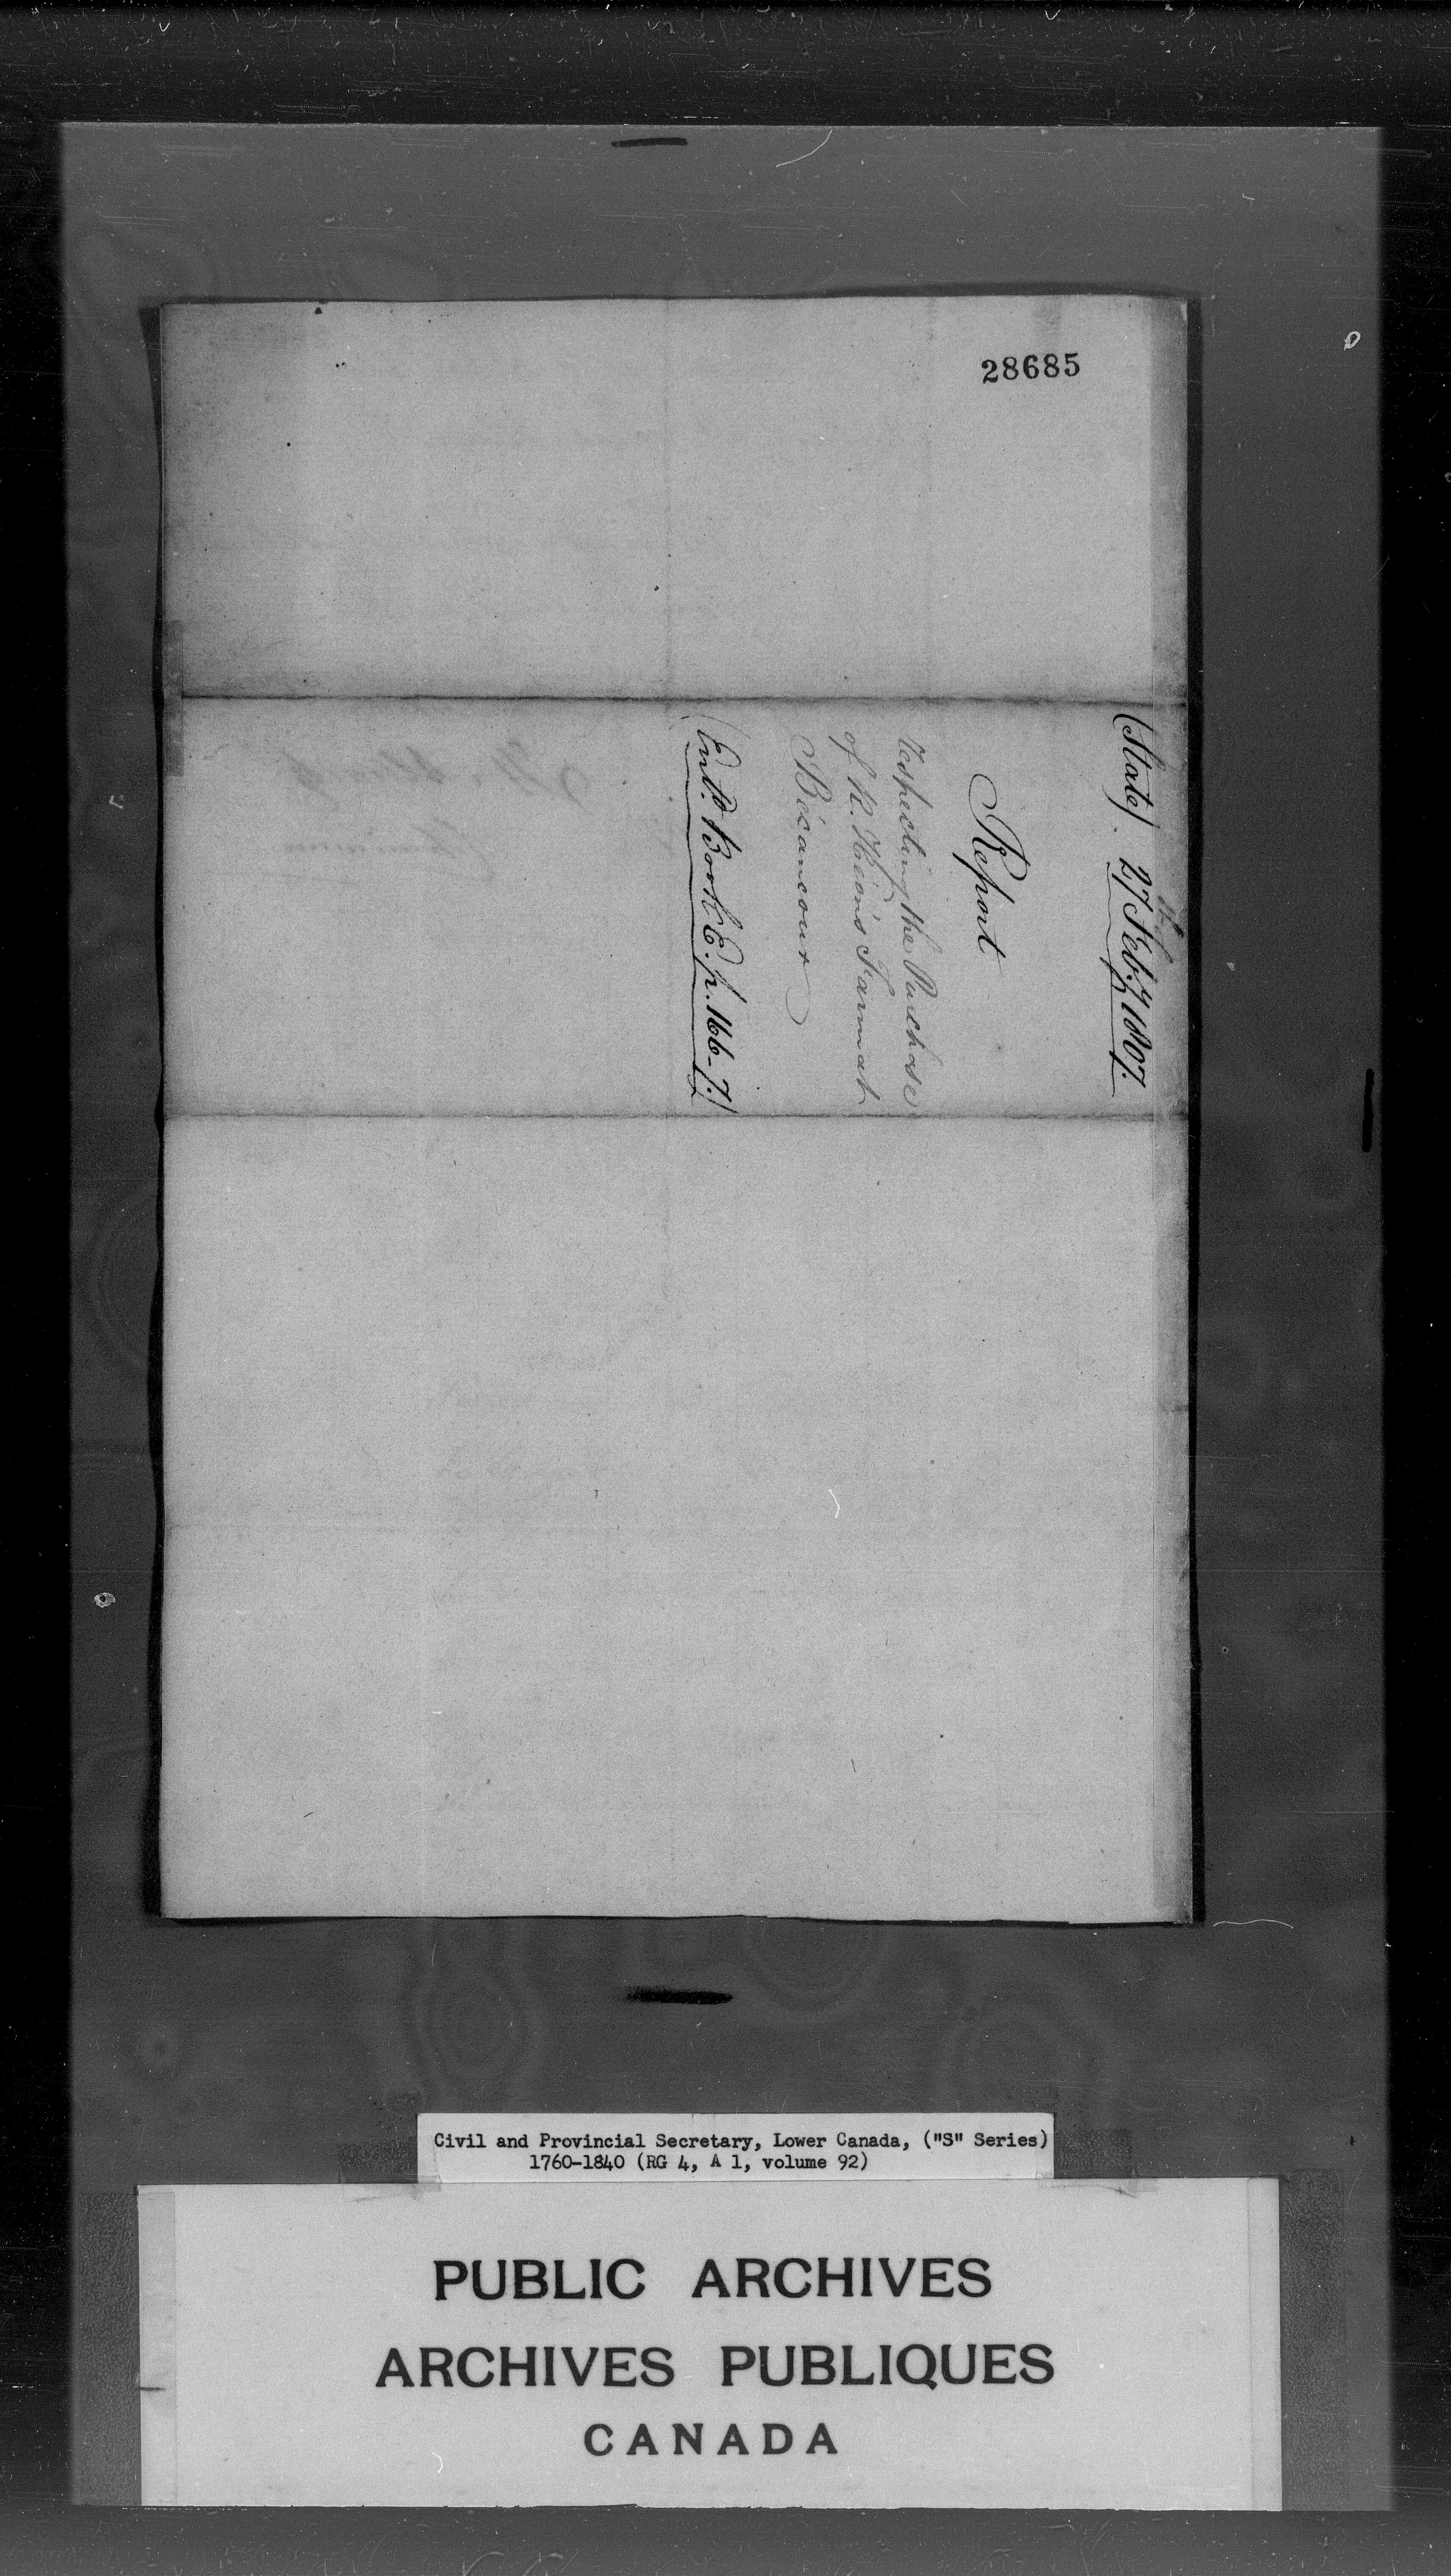 28685
(State). 27 Feby 1807.
Report
respecting the Purchase
of R. Kéon's Farm at
Bécancour
(Entd. Book E. p. 166-7.)
Civil and Provincial Secretary, Lower Canada, ("S" Series)
1760-1840 (RG 4, A 1, volume 92)
PUBLIC ARCHIVES
ARCHIVES PUBLIQUES
CANADA